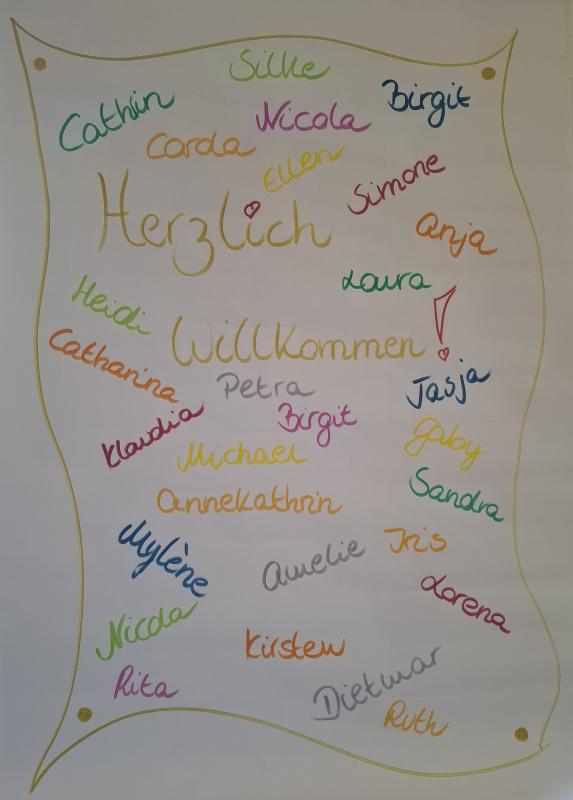 Silke
Birgit
Cathrin
Nicola
Carola
Ellen
Simone
Herzlich
Anja
Laura
Heidi
Willkommen!
Catharina
Petra
Jasja
Klaudia
Birgit
Gaby
Michael
Sandra
Annekathrin
Mylène
Iris
Amelie
Lorena
Nicola
Kirsten
Rita
Dietmar
Ruth